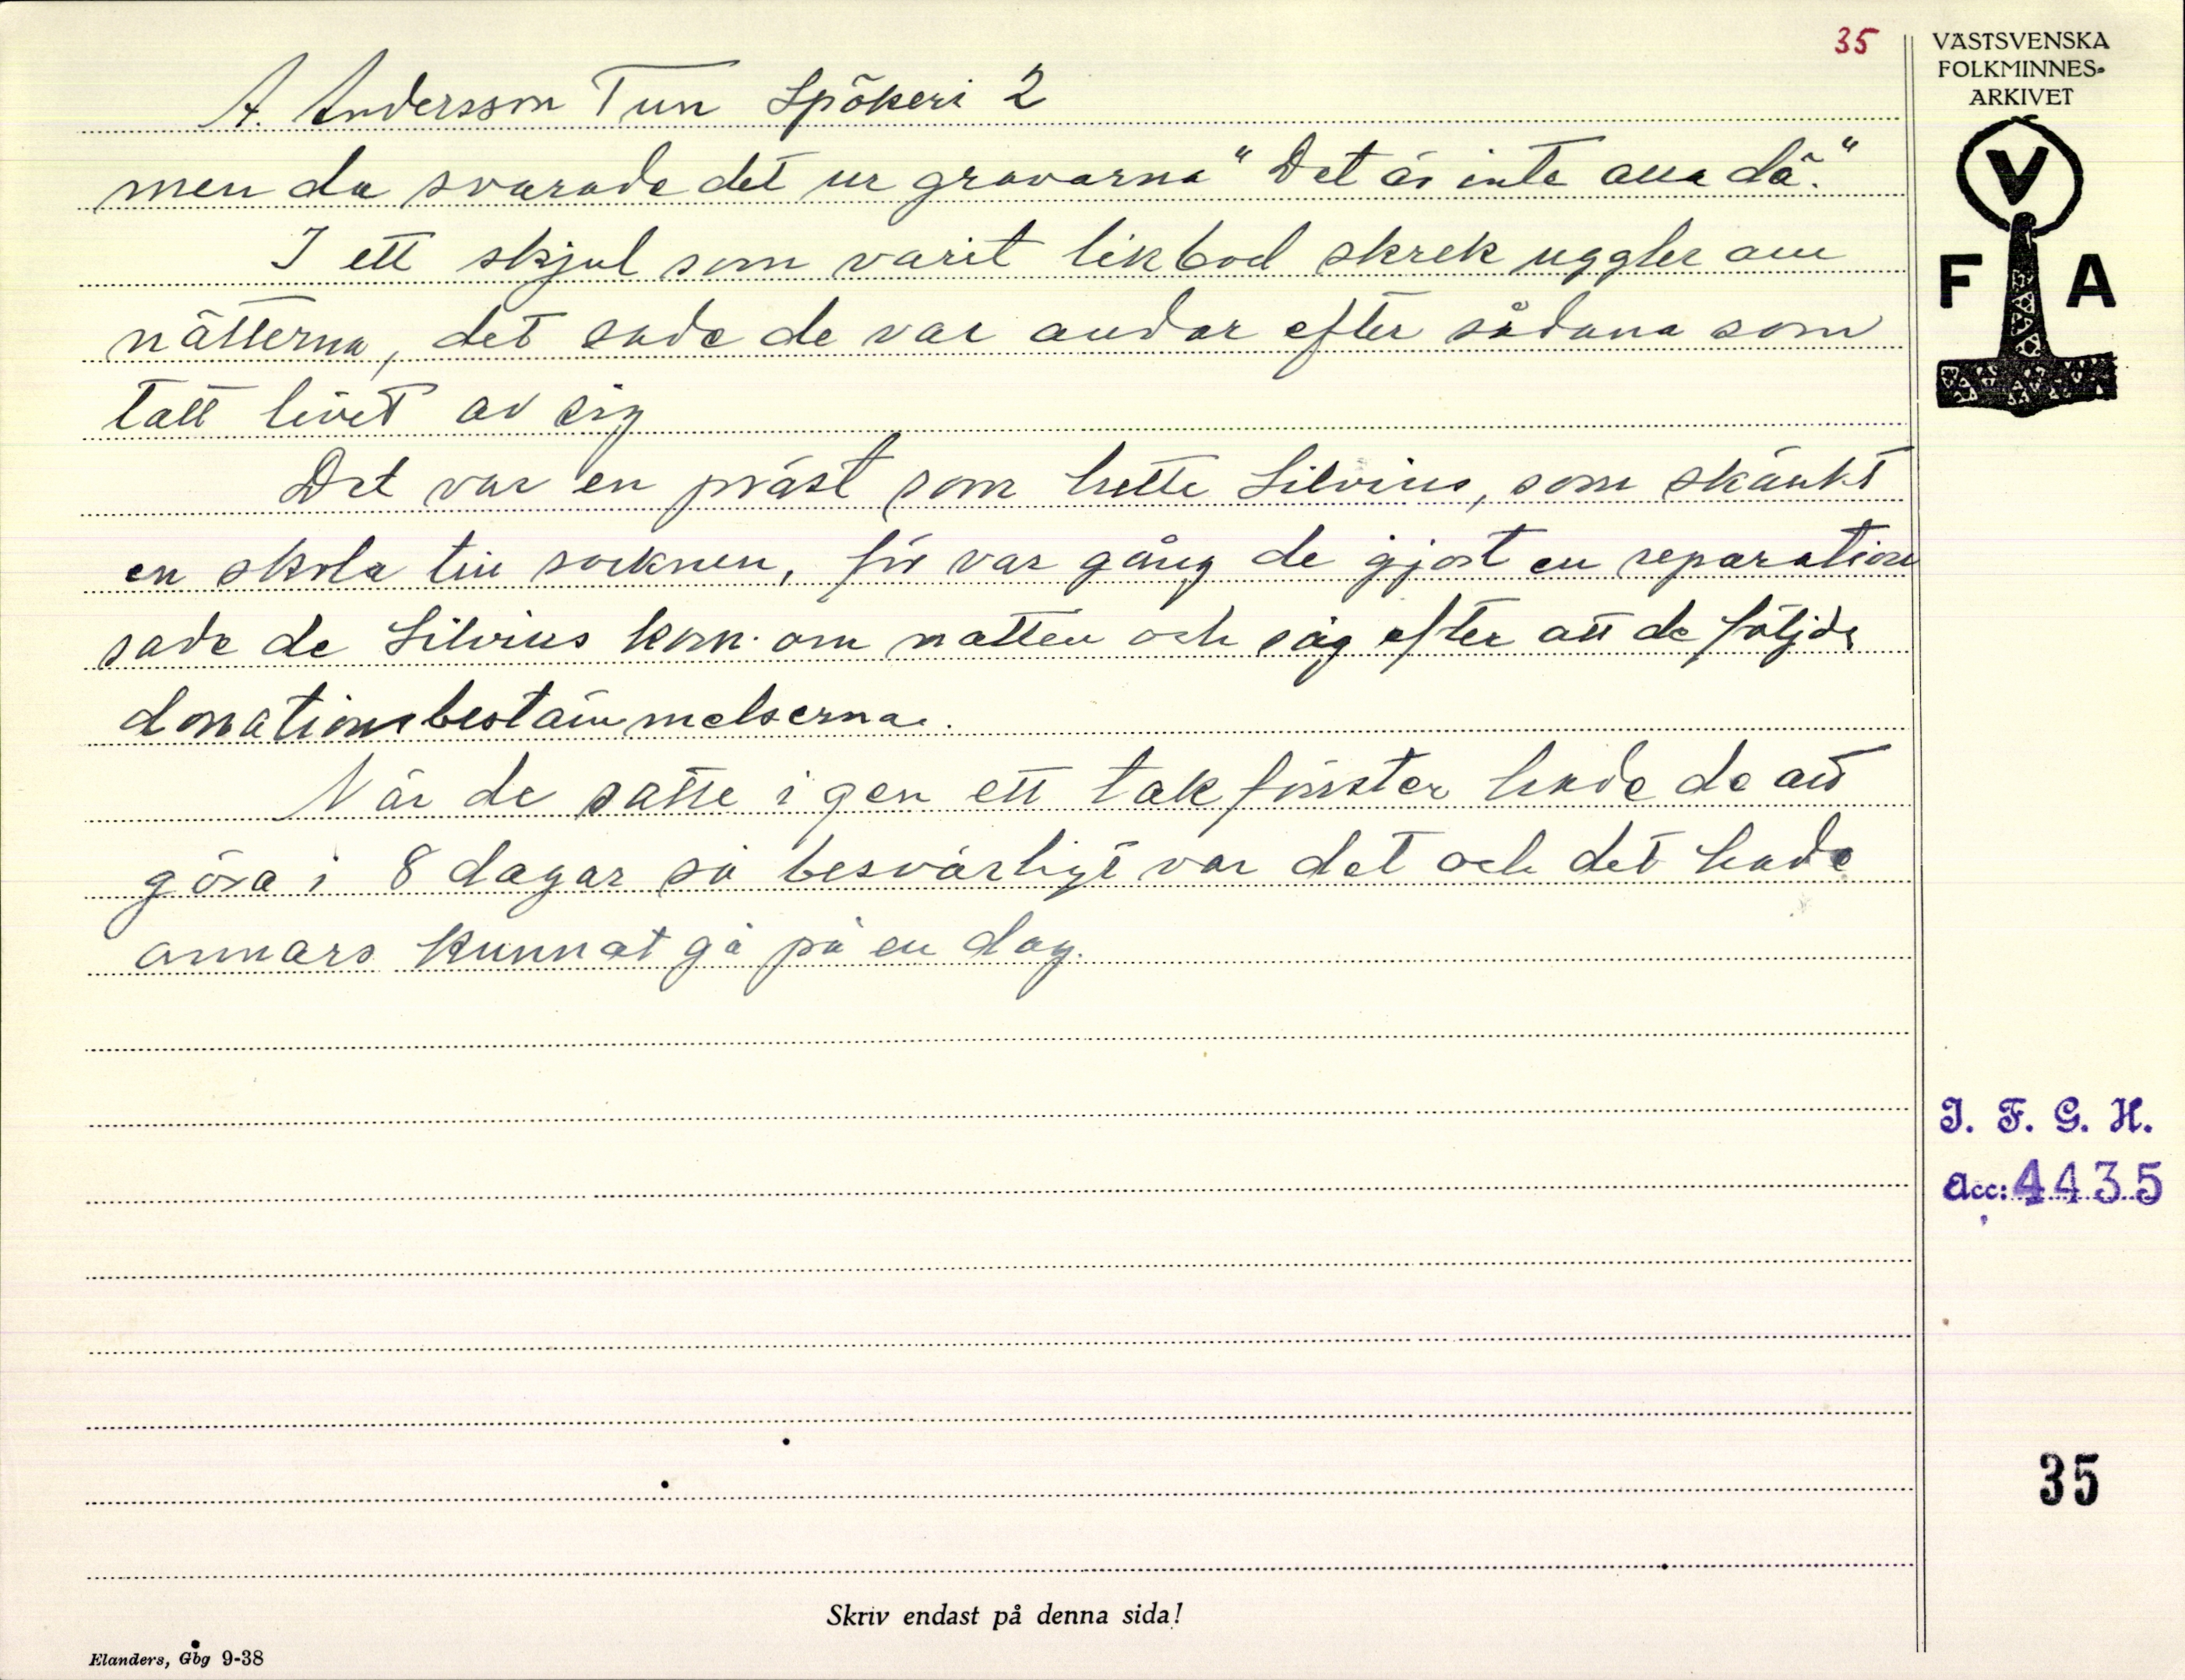 35
VÄSTSVENSKA
FOLKMINNES-
ARKIVET
V
F A
A. Andersson Tun Spökeri 2
men då svarade det ur gravarna "Det är inte alla då."
I ett skjul som varit likbod skrek ugglor om
nätterna, det sade de var andar efter sådana som
tatt livet av sig
Det var en präst som hette Silvius, som skänkt
en skola till socknen, för var gång de gjort en reparation
sade de Silvius kom om natten och såg efter att de följde
donationsbestämmelserna.
När de satte igen ett takfönster hade de att
göra i 8 dagar så besvärligt var det och det hade
annars kunnat gå på en dag.
I. F. G. H.
Acc: 4435
35
Skriv endast på denna sida!
Elanders, Gbg 9-38